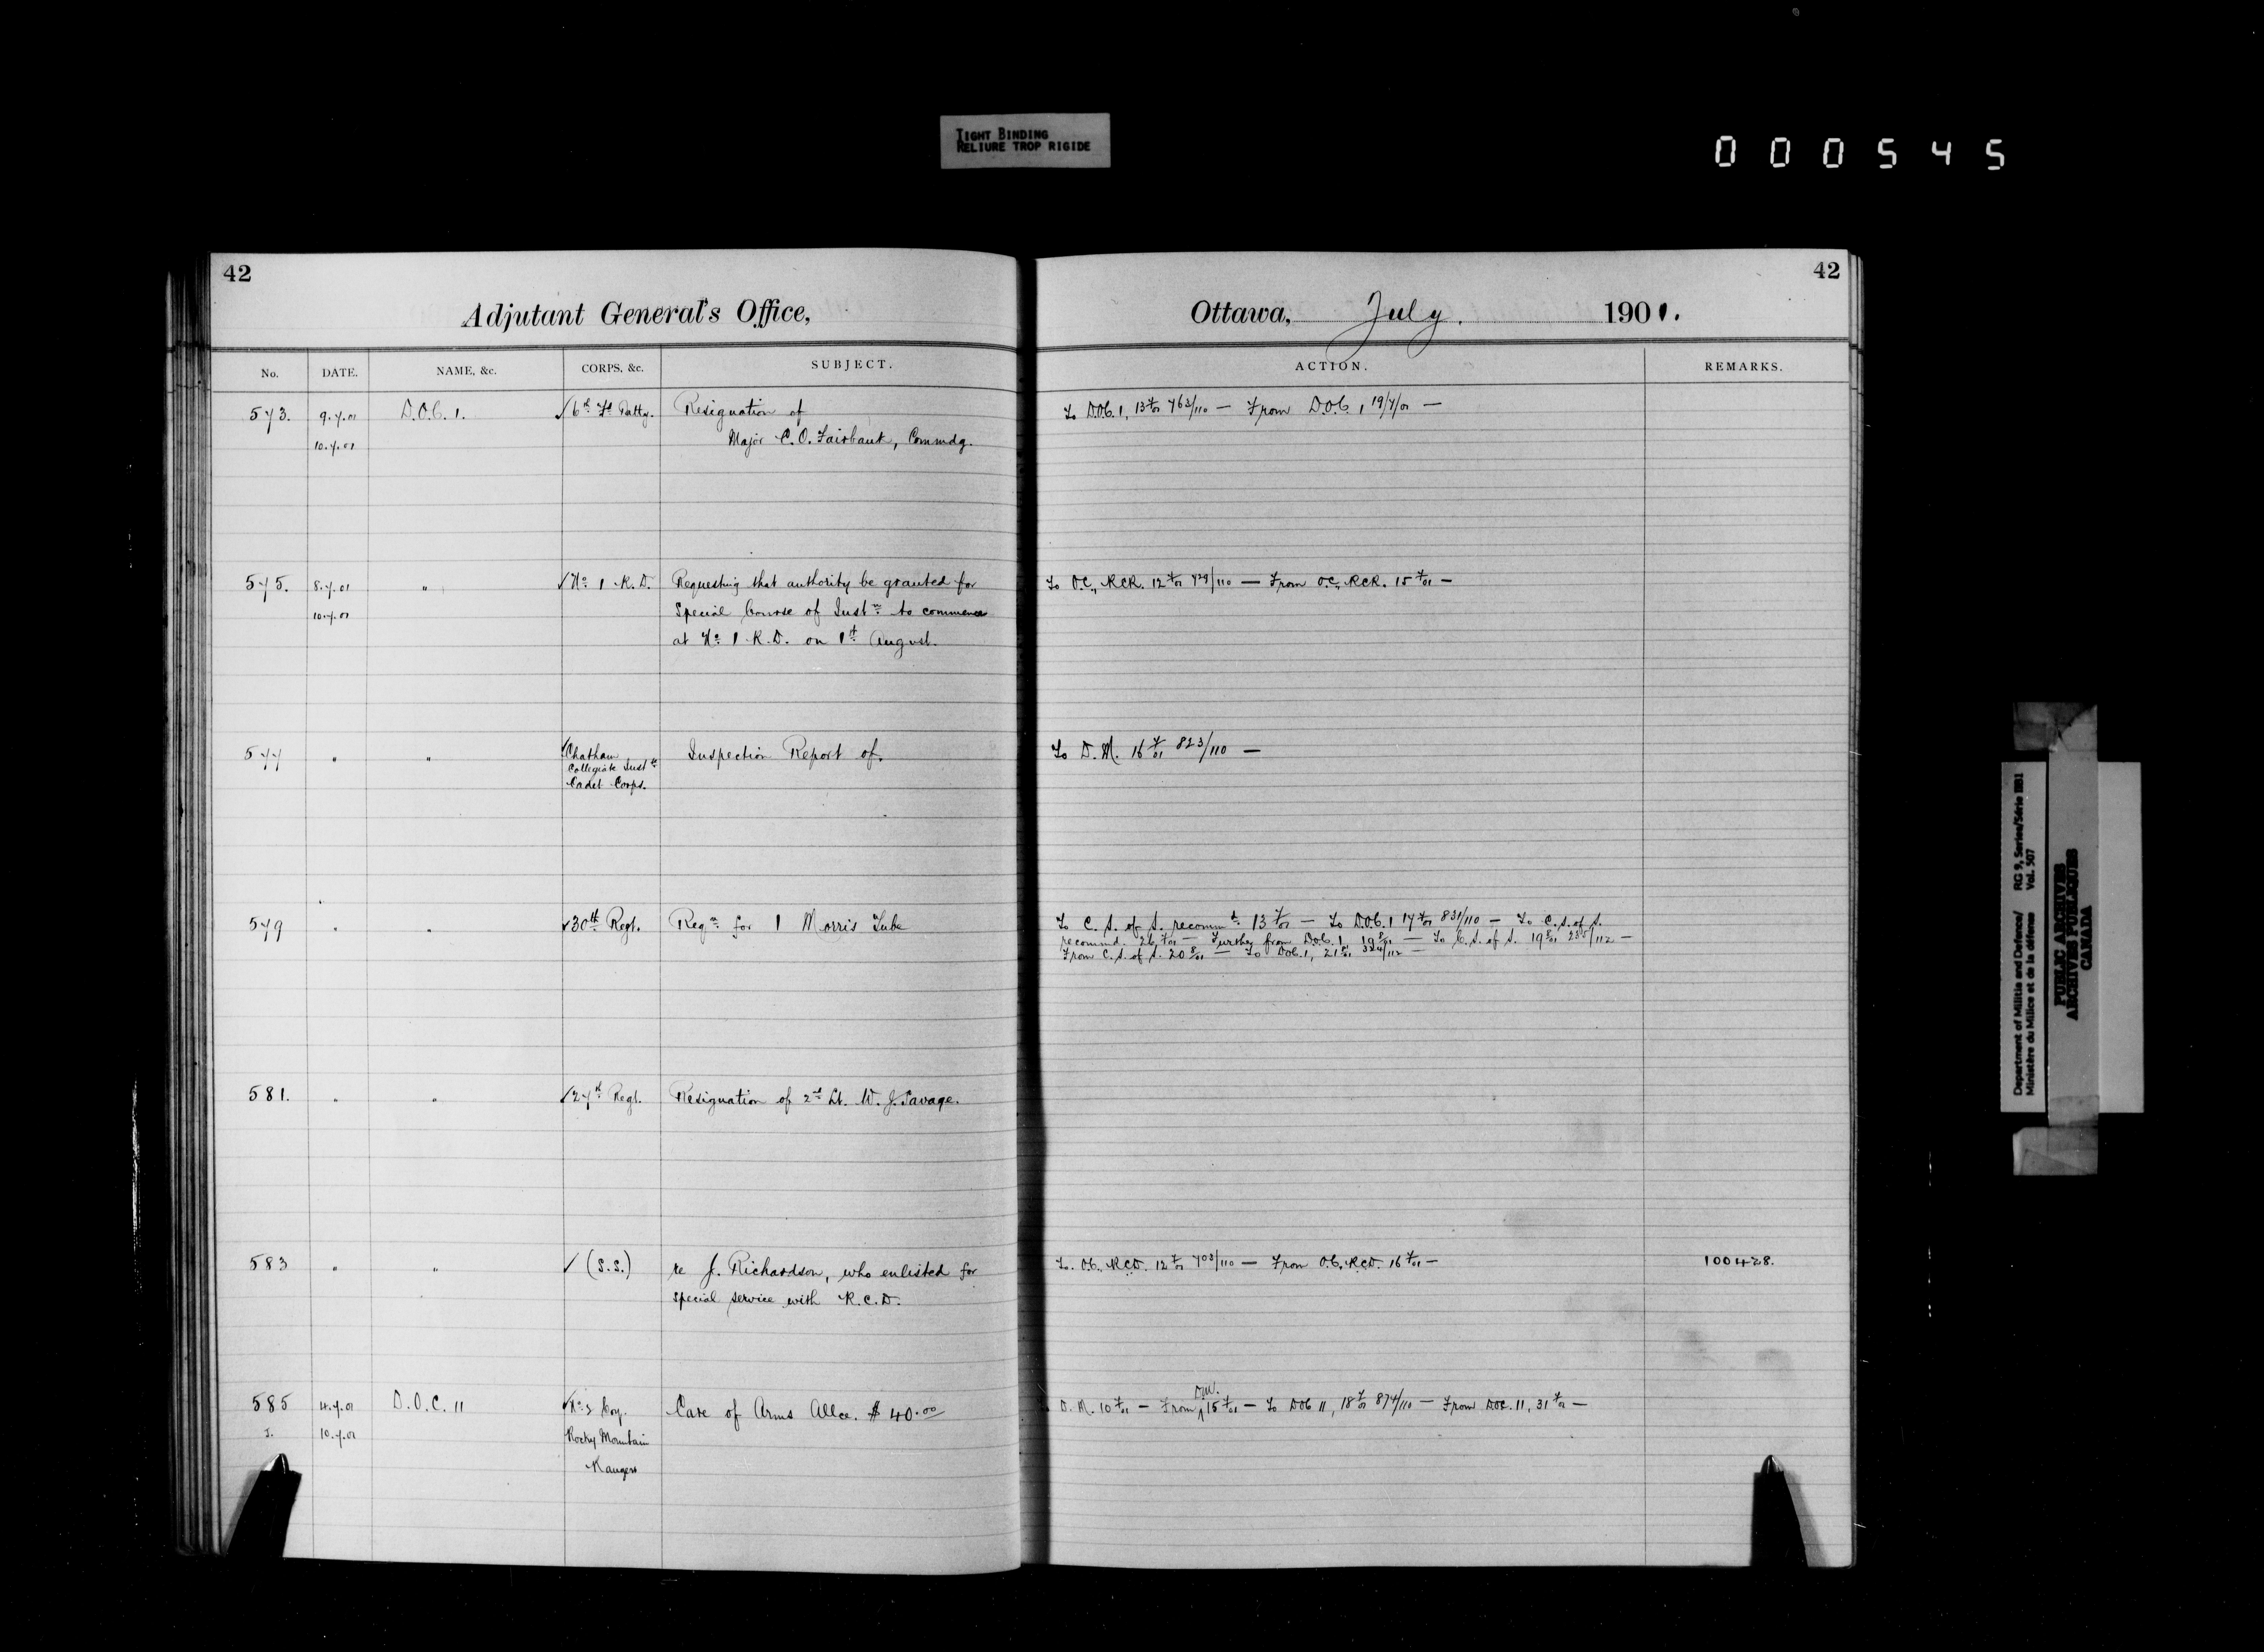 TIGHT BINDING
RELIURE TROP RIGIDE
000545
42
Adjutant General's Office,
No. DATE. NAME, &c. CORPS, &c. SUBJECT.
573. 9.7.01 D.O.C. 1. ✓6th Fd Batty. Resignation of
10.7.01 Major C.O. Fairbank, Commdg.
575. 8.7.01 " ✓No 1 R.D. Requesting that authority be granted for
10.7.01 Special Course of Instn to commence
at No 1 R.D. on 1st August.
577 " " ✓Chatham Inspection Report of.
Collegiate Instte
Cadet Corps.
579 " " ✓30th Regt. Reqn for 1 Morris Tube
581. " " ✓27th Regt. Resignation of 2nd Lt. W. J. Savage.
583 " " ✓(S.S.) re J. Richardson, who enlisted for
special service with R.C.D.
585 4.7.01 D.O.C. 11 Care of Arms Allce. $40.00
10.7.01 Rocky Mountain
Rangers
42
Ottawa, July. 1901.
ACTION. REMARKS.
To D.O.C. 1, 13 7/01 763/110 — From D.O.C. 1 19/7/01 —
To O.C., RCR. 12 7/01 729/110 — From O.C., RCR. 15 7/01 —
To D.M. 16 7/01 823/110 —
To C.S. of S. recommd 13 7/01 — To D.O.C. 1 17 7/01 831/110 — To C.S. of S.
recommd. 26 7/01 — Further from D.O.C. 1 19 8/01 — To C.S. of S. 19 8/01 285/112 —
From C.S. of S. 20 8/01 — To D.O.C. 1, 21 8/01 324/112 —
To O.C., RCD. 12 7/01 703/110 — From O.C., RCD. 16 7/01 — 100428.
D.M.
D.M. 10 7/01 — From 15 7/01 — To DOC 11, 18 7/01 874/110 — From DOC. 11, 31 7/01 —
Department of Militia and Defence/ RG 9, Series/Série IIB1
Ministère du Milice et de la défense Vol. 507
PUBLIC ARCHIVES
ARCHIVES PUBLIQUES
CANADA